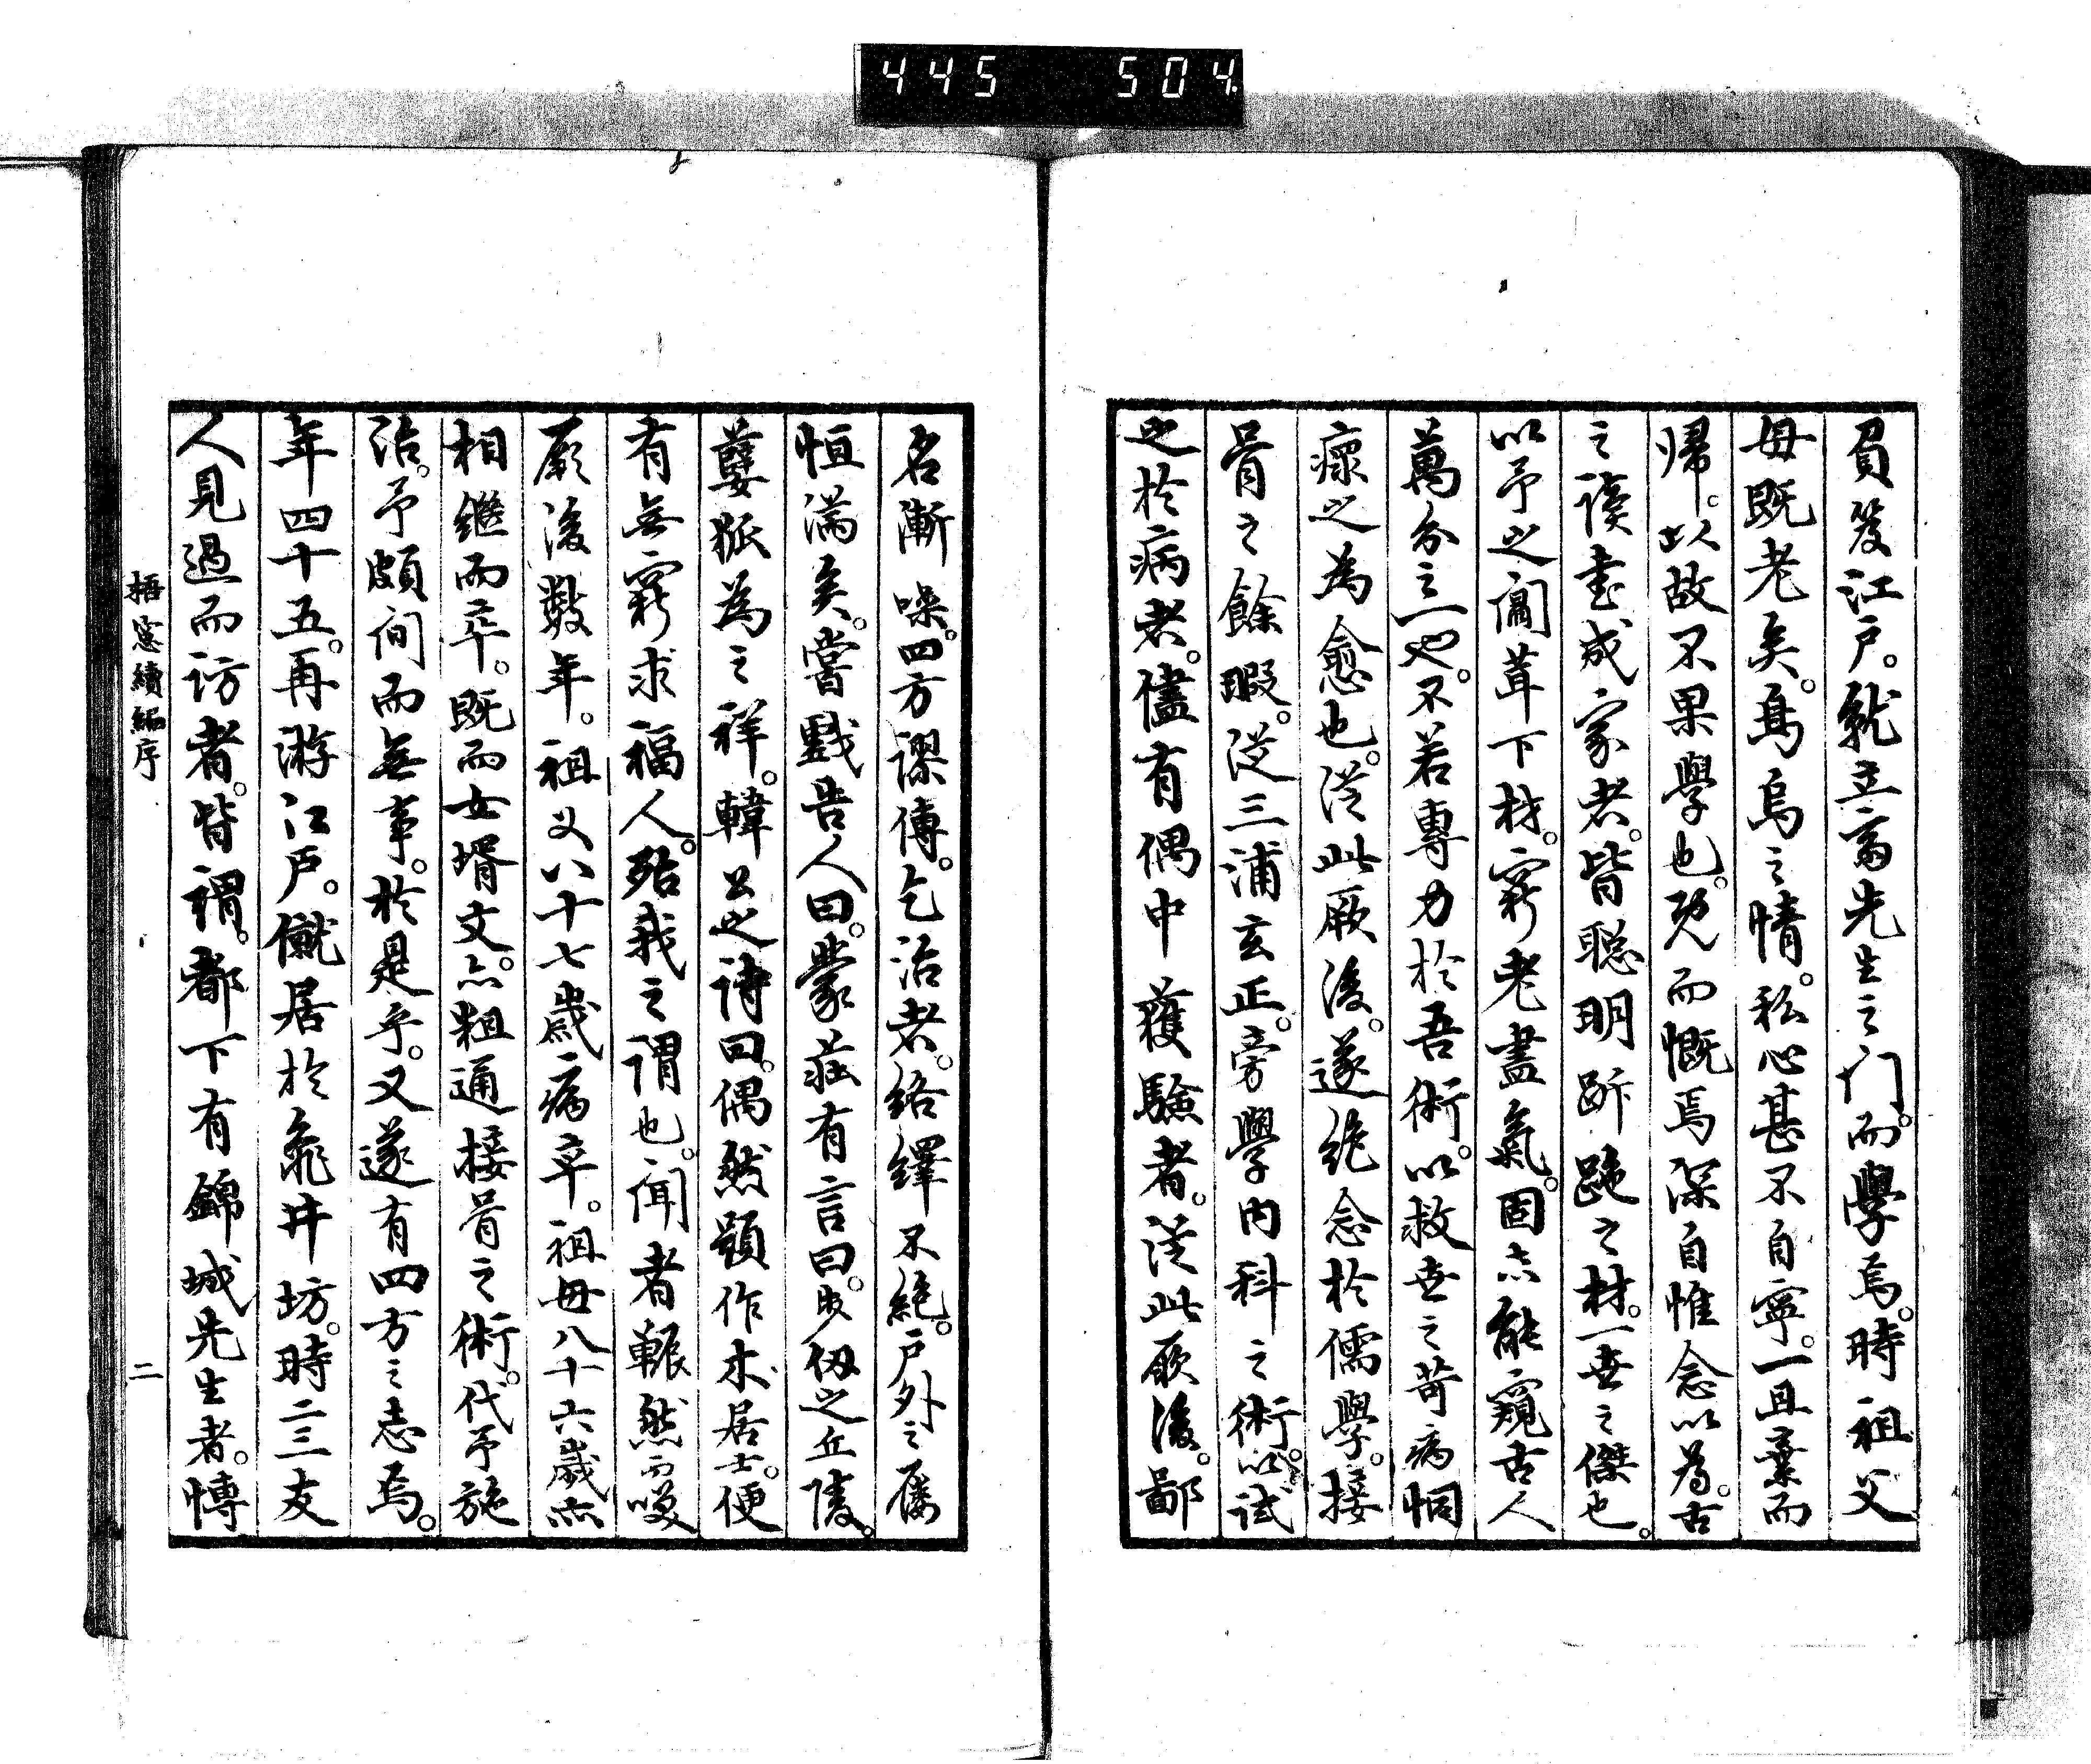 445 504
負笈江戸。就立斎先生之门。而學焉。時祖父
母既老矣。烏鳥之情。私心甚不自寧。一旦棄而
帰。以故不果學也。既而慨焉深自惟念以爲。古
之讀書成家者。皆聡明跅跑之材。一世之傑也。
以予之闒茸下材。窮老盡氣。固亦能窺古人
萬分之一也。不若專力於吾術。以救世之苛病恫
瘝之為愈也。從此厥後。遂絶念於儒學。接
骨之餘暇。從三浦玄正。旁學内科之術。以試
之於病者。儘有偶中獲驗者。從此厥後。鄙
名漸噪。四方謬傳。乞治者。絡繹不絶。戸外之屨
恒滿矣。嘗戲告人曰。蒙荘有言曰。歩仭之丘陵。
㜸狐為之祥。韓公之詩曰。偶然題作木居士。便
有無窮求福人。殆我之謂也。聞者囅然而唉
厥後數年。祖父八十七歳病卒。祖母八十六歳亦
相継而卒。既而女壻文亦粗通接骨之術。代予施
治。予頗間而無事。於是乎。又遂有四方之志焉。
年四十五。再游江戸。僦居於龜井坊。時二三友
人見過而訪者。皆謂。都下有錦城先生者。博
梧窓續編序
二